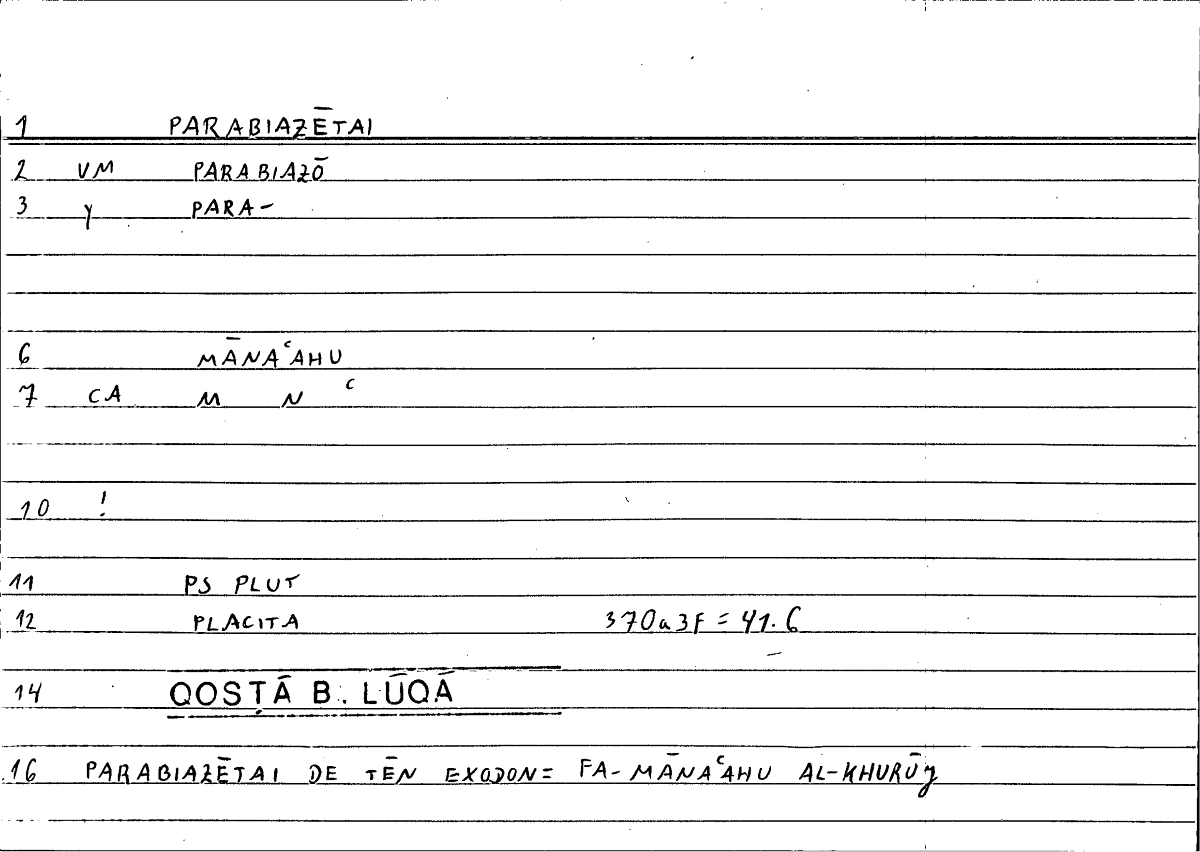 1 PARABIAZĒTAI
2 VM PARABIAZŌ
3 y PARA-
6 MĀNAʿAHU
7 CA M N ʿ
10 !
11 PS PLUT
12 PLACITA 370a3F = 41.6
14 QOSṬĀ B. LŪQĀ
16 PARABIAZĒTAI DE TĒN EXODON= FA-MĀNAʿAHU AL-KHURŪJ